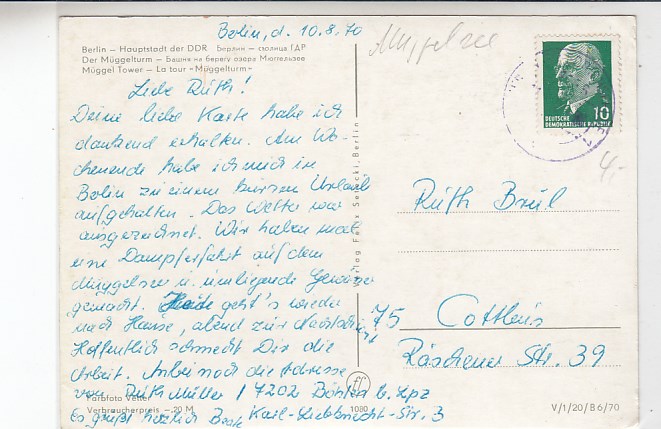 Berlin, d. 10.8.70
Müggelsee
Berlin – Hauptstadt der DDR Берлин – столица ГДР
Der Müggelturm – Башня на берегу озера Мюггельзее
Müggel Tower – La tour «Müggelturm»
DEUTSCHE
DEMOKRATISCHE REPUBLIK
10
4,-
Liebe Ruth!
Deine liebe Karte habe ich
dankend erhalten. Am Wo-
chenende habe ich mich in
Berlin zu einem kurzen Urlaub
aufgehalten. Das Wetter war
ausgezeichnet. Wir haben mal
eine Dampferfahrt auf dem
Müggelsee u. umliegende Gewässer
gemacht. Heute geht's wieder
nach Hause, abend zur Nachtschicht
Hoffentlich schmeckt Dir die
Arbeit. Anbei noch die Adresse
von Ruth Müller / 7202 Böhlen b. Lpz
Karl-Liebknecht-Str. 3
Es grüßt herzlich
Farbfoto Vetter
Verbraucherpreis –.20 M
Verlag Felix Setecki, Berlin
1080
Ruth Brül
75 Cottbus
Räschener Str. 39
V/1/20/B6/70